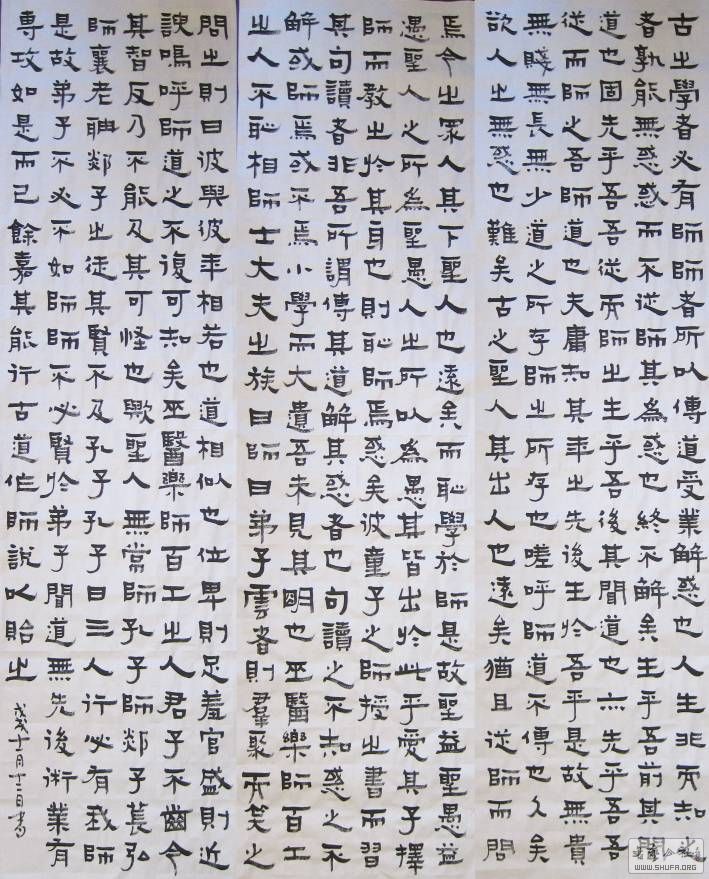 古之學者必有師師者所以傳道受業解惑也人生非而知之
者孰能無惑惑而不從師其為惑也終不解矣生乎吾前其聞
道也固先乎吾吾從而師之生乎吾後其聞道也亦先乎吾吾
從而師之吾師道也夫庸知其年之先後生於吾乎是故無貴
無賤無長無少道之所存師之所存也嗟呼師道不傳也久矣
欲人之無惑也難矣古之聖人其出人也遠矣猶且從師而問
焉今之眾人其下聖人也遠矣而恥學於師是故聖益聖愚益
愚聖人之所為聖愚人之所以為愚其皆出於此乎愛其子擇
師而教之於其身也則恥師焉惑矣彼童子之師授之書而習
其句讀者非吾所謂傳其道解其惑者也句讀之不知惑之不
解或師焉或不焉小學而大遺吾未見其明也巫醫樂師百工
之人不恥相師士大夫之族曰師曰弟子雲者則羣聚而笑之
問之則曰彼與彼年相若也道相似也位卑則足羞官盛則近
諛嗚呼師道之不復可知矣巫醫樂師百工之人君子不齒今
其智反乃不能及其可怪也歟聖人無常師孔子師郯子萇弘
師襄老聃郯子之徒其賢不及孔子孔子曰三人行必有我師
是故弟子不必不如師師不必賢於弟子聞道無先後術業有
專攻如是而已餘嘉其能行古道作師說以貽之
戊戌十月十二日書
WWW.SHUFA.ORG